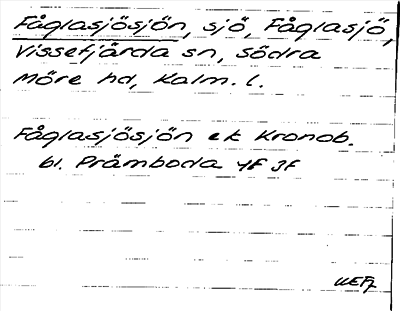 Fåglasjösjön, sjö, Fåglasjö,
Vissefjärda sn, södra
Möre hd, Kalm. l.
Fåglasjösjön ek Kronob.
bl. Pråmboda 4F 3f